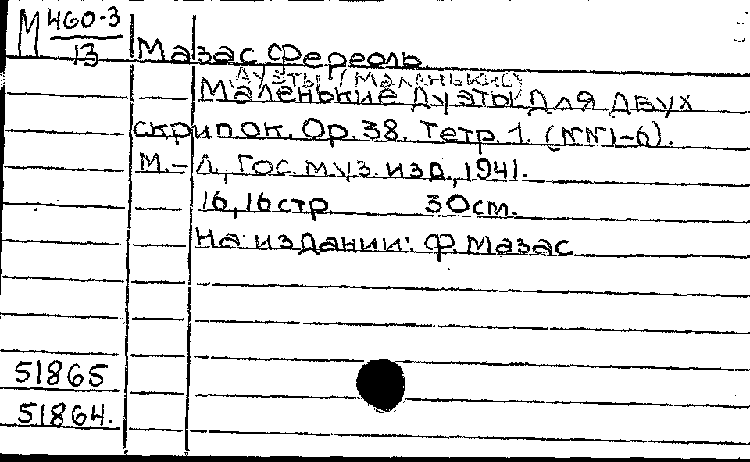 М 460-3
13
Мазас Фереоль
Дуэты (маленькие)
Маленькие дуэты для двух
скрипок. Ор. 38. Тетр. 1. (NN1-6).
М.-Л., Гос. муз. изд., 1941.
16, 16 стр 30 см.
На издании: Ф. Мазас
51865
51864.